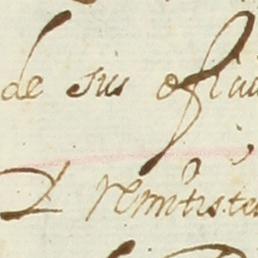 de sus ofiui
Y remitiste